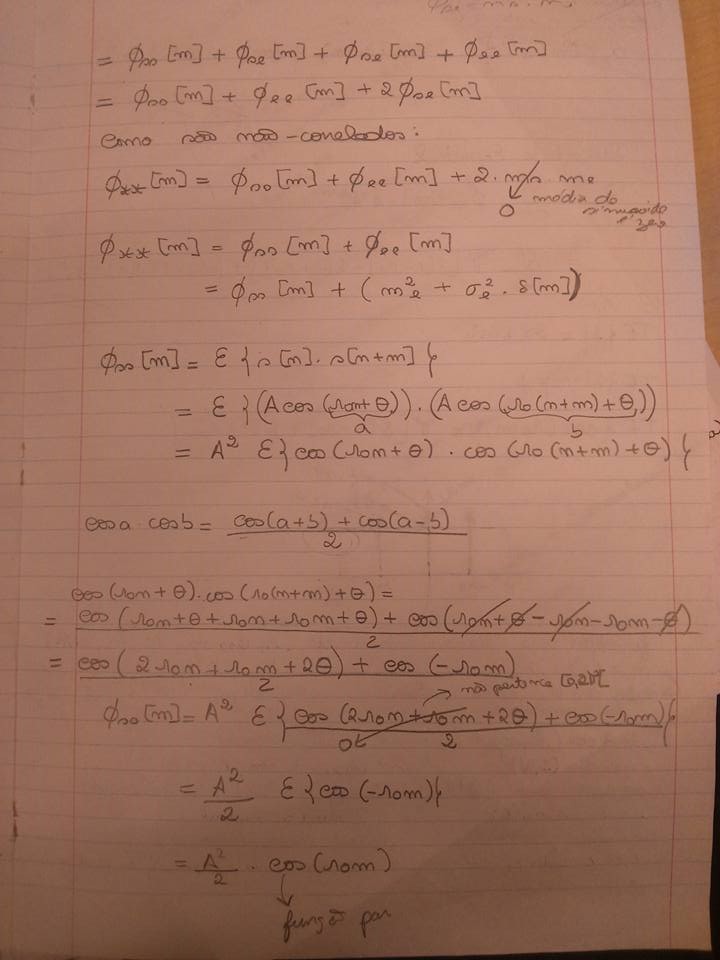 = ϕss[m] + ϕse[m] + ϕse[m] + ϕee[m]
= ϕss[m] + ϕee[m] + 2ϕse[m]
Como são não-correlados:
ϕxx[m] = ϕss[m] + ϕee[m] + 2. ms me
0 média do sinusoide é zero
ϕxx[m] = ϕss[m] + ϕee[m]
= ϕss[m] + (m²e + σ²e . δ[m])
ϕss[m] = E{s[n]. s[n+m]}
= E{(A cos(Ω0n+θ)) . (A cos(Ω0(n+m)+θ))}
a b
= A² E{cos(Ω0n+θ) . cos(Ω0(n+m)+θ)}
cosa.cosb = cos(a+b) + cos(a-b) / 2
cos(Ω0n+θ).cos(Ω0(n+m)+θ) =
= cos(Ω0n+θ+Ω0n+Ω0m+θ) + cos(Ω0n+θ-Ω0n-Ω0m-θ) / 2
= cos(2Ω0n+Ω0m+2θ) + cos(-Ω0m) / 2
não pertence [0,2π[
ϕss[m] = A² E{cos(2Ω0n+Ω0m+2θ) + cos(-Ω0m) / 2}
= A²/2 E{cos(-Ω0m)}
= A²/2 . cos(Ω0m)
função par